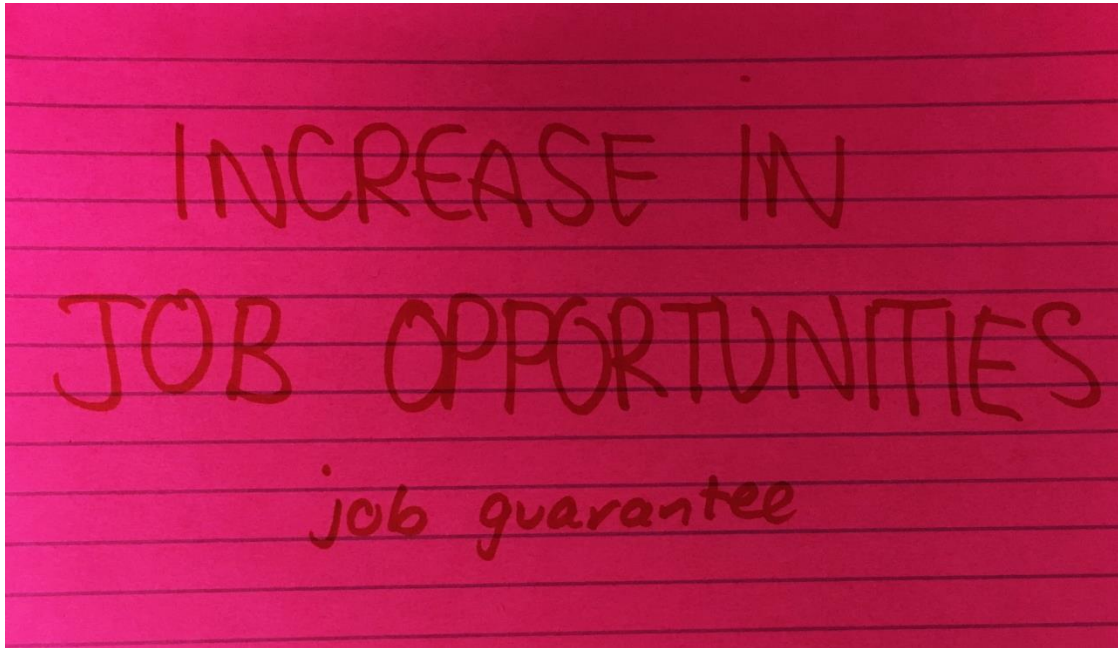 INCREASE IN
JOB OPPORTUNITIES
job guarantee